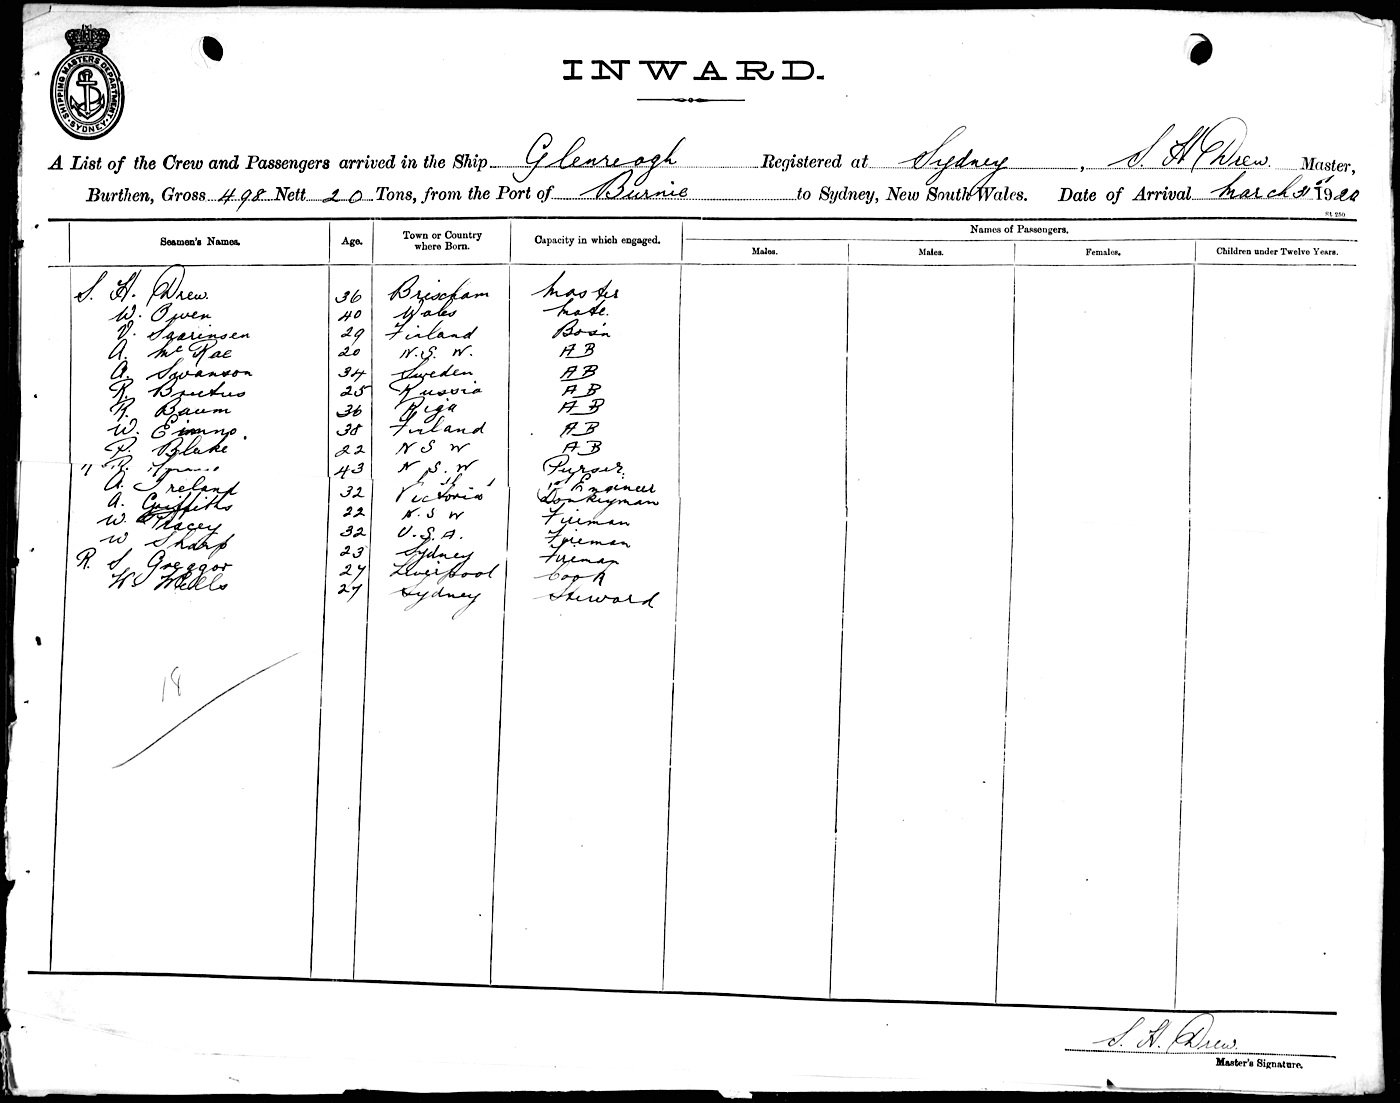 SHIPPING MASTERS DEPARTMENT
SYDNEY
INWARD.
A List of the Crew and Passengers arrived in the Ship Glenreagh Registered at Sydney, S. H Drew. Master,
Burthen, Gross 498 Nett 20 Tons, from the Port of Burnie to Sydney, New South Wales. Date of Arrival March 31st 1920
St 250
Seamen's Names. Age. Town or Country where Born. Capacity in which engaged. Names of Passengers.
Males. Males. Females. Children under Twelve Years.
S. H. Drew. 36 Brischam Master
W. Owen 40 Wales Mate.
V. Sgarinsen 29 Finland Bosn
A. McRae 20 N.S.W. AB
A. Swanson 34 Sweden AB
R. Brutus 25 Russia AB
R. Baum 36 Riga AB
W. 38 Finland AB
P. Blake 22 N S W AB
43 N.S.W Purser.
A. Ireland 32 Victoria 1st Engineer
A. Griffiths 22 N.S.W Donkeyman
W. Tracey 32 U.S.A. Fireman
W Sharp 23 Sydney Fireman
R. S. Greggor 27 Liverpool Fireman
W. Wells 27 Sydney Cook
Steward
18
S. H. Drew.
Master's Signature.